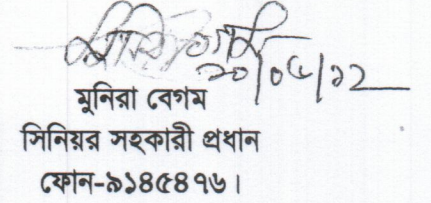 ২০/০৫/১২
মুনিরা বেগম
সিনিয়র সহকারী প্রধান
ফোন-৯১৪৫৪৭৬।